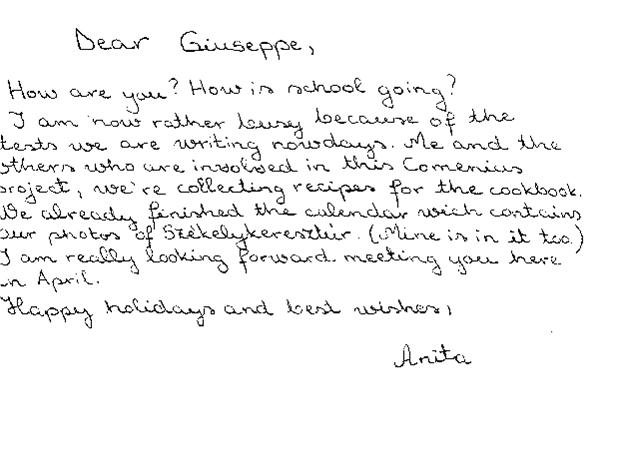 Dear Giuseppe,
How are you? How is school going?
I am now rather busy because of the
tests we are writing nowdays. Me and the
others who are involved in this Comenius
project, we're collecting recipes for the cookbook.
We already finished the calendar wich contains
our photos of Székelykeresztúr. (Mine is in it too.)
I am really looking forward meeting you here
in April.
Happy holidays and best wishes,
Anita